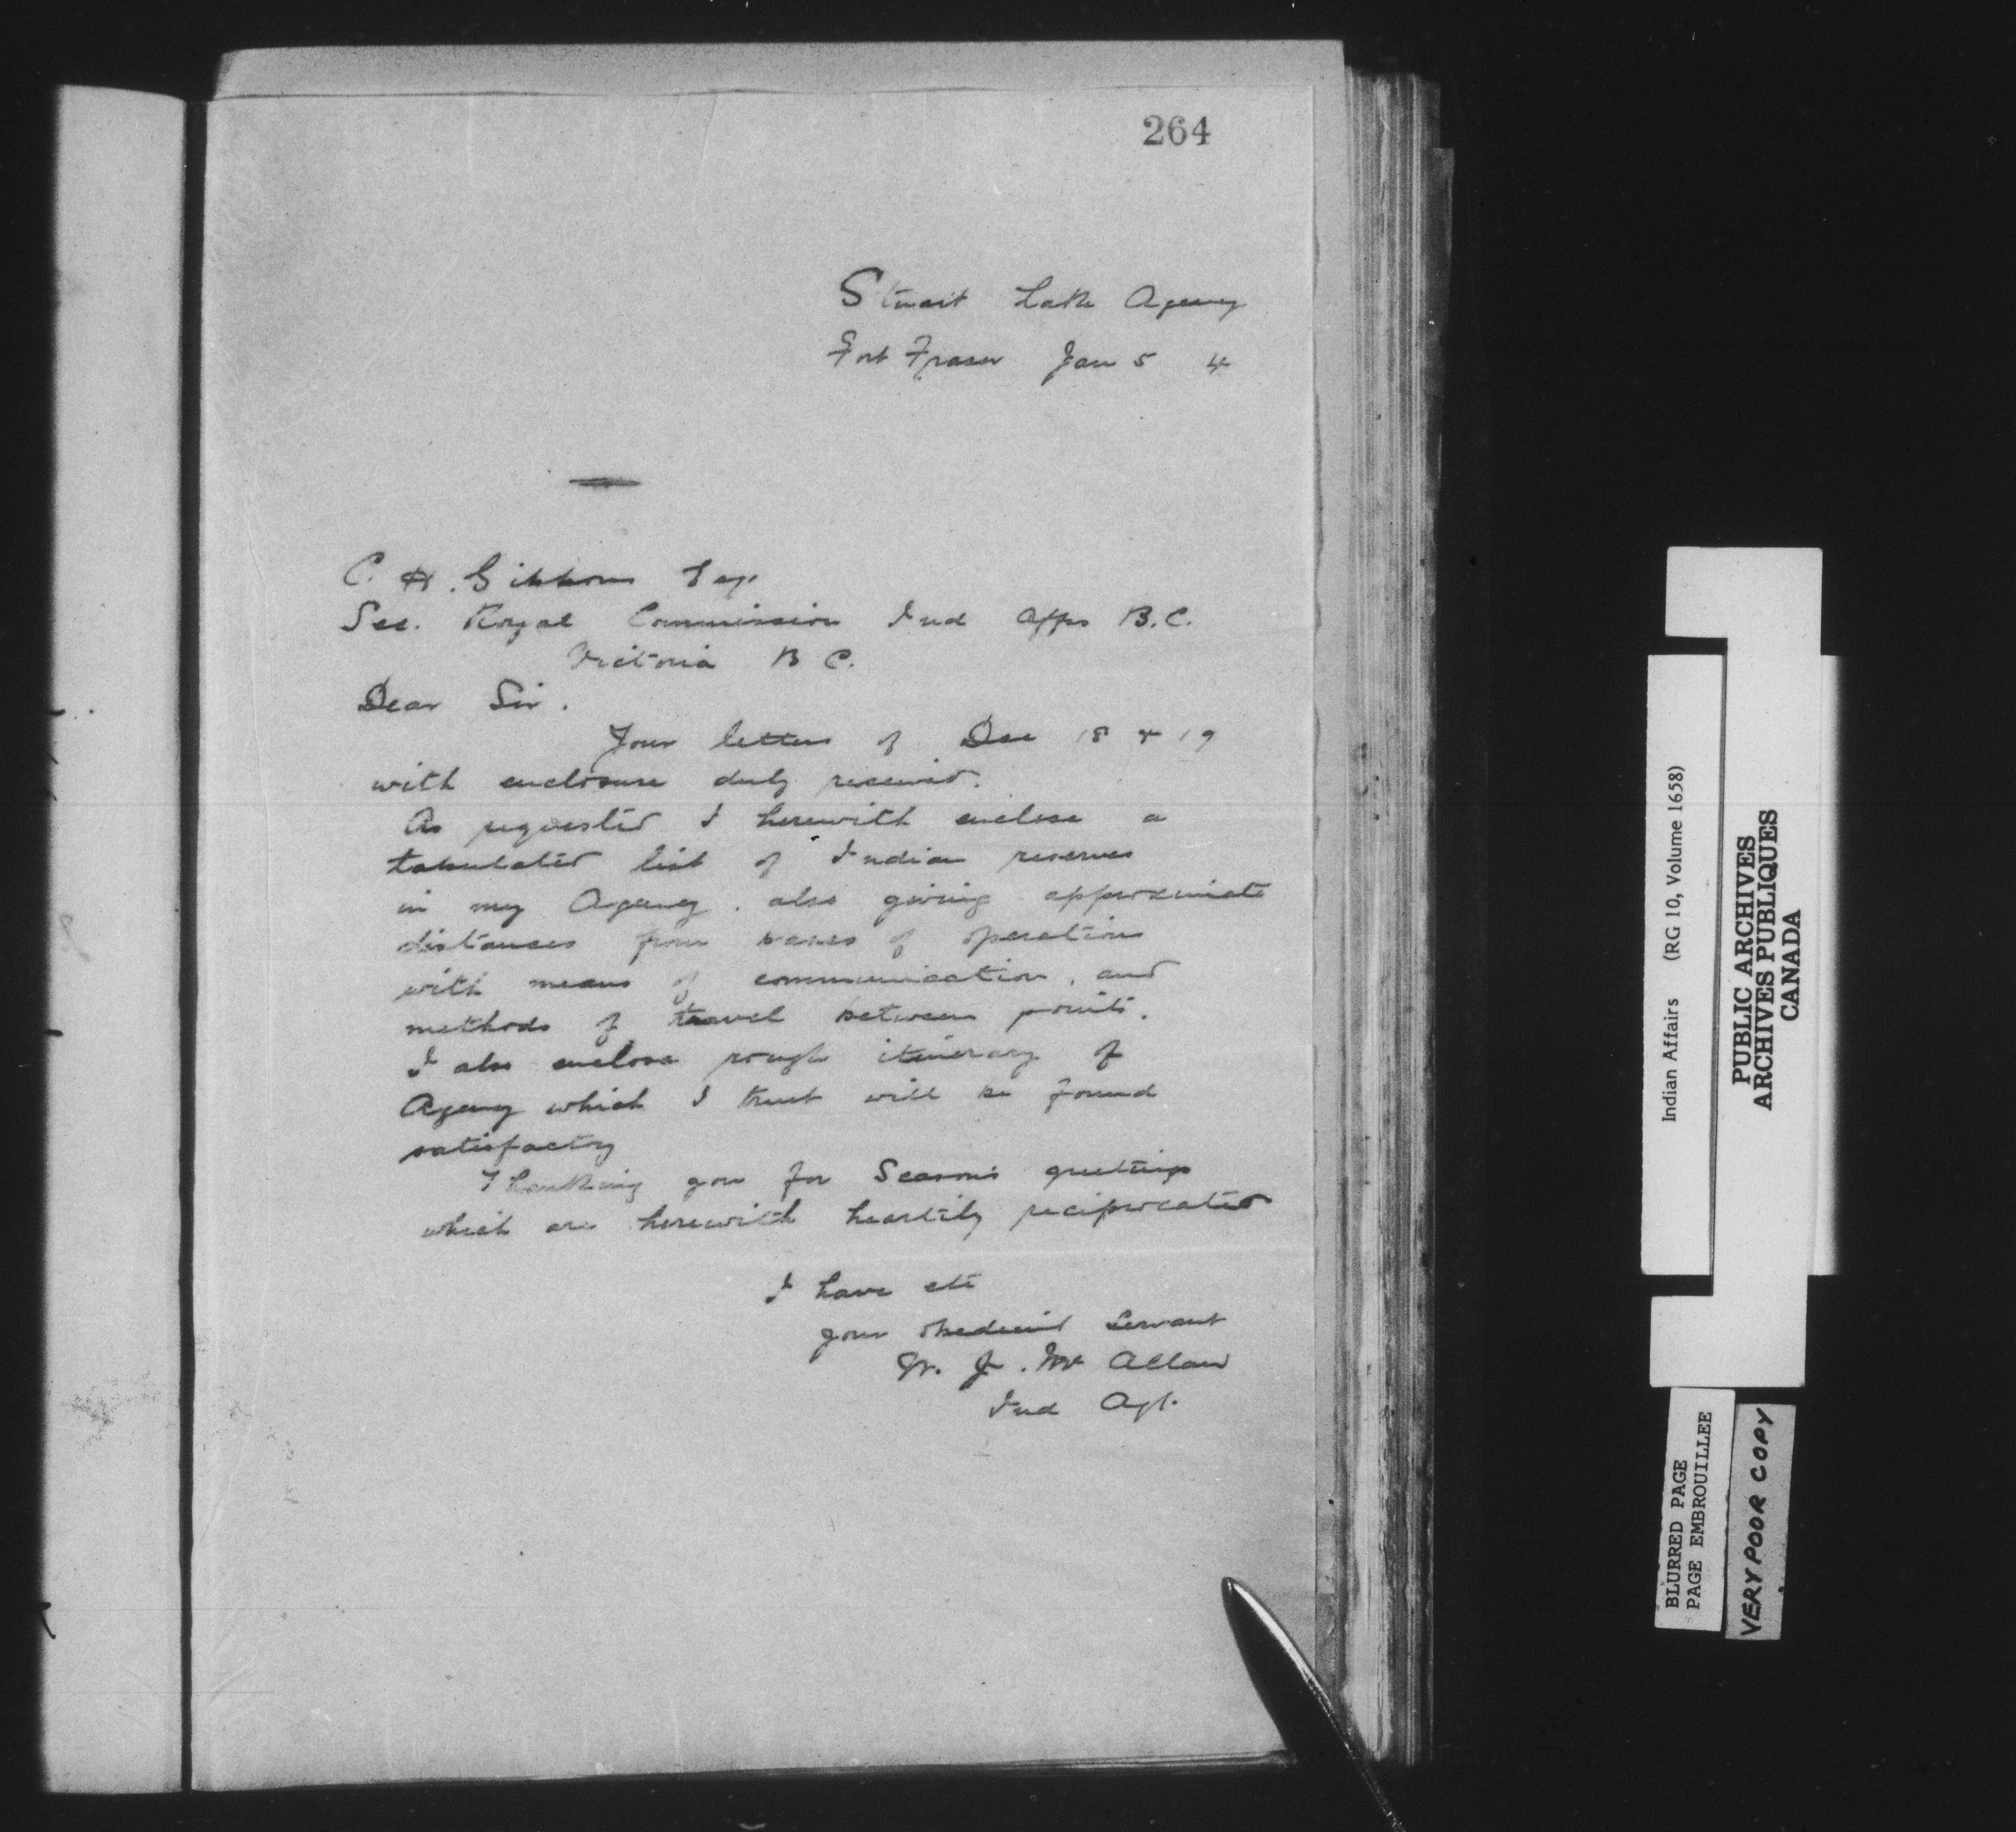 264
Stuart Lake Agency
Fort Fraser Jan 5 4
C. H. Gibbons Esq.
Sec. Royal Commission Ind Affrs B.C.
Victoria B C.
Dear Sir.
Your letters of Dec 18 & 19
with enclosure duly received.
As requested I herewith enclose a
tabulated list of Indian reserves
in my Agency. also giving approximate
distances from bases of operations
with means of communication, and
methods of travel between points.
I also enclose rough itinerary of
Agency which I trust will be found
satisfactory
Thanking you for Season's greetings
which are herewith heartily reciprocated
I have etc
your obedient servant
W. J. Mc Allan
Ind Agt.
Indian Affairs (RG 10, Volume 1658)
PUBLIC ARCHIVES
ARCHIVES PUBLIQUES
CANADA
BLURRED PAGE
PAGE EMBROUILLEE
VERY POOR COPY